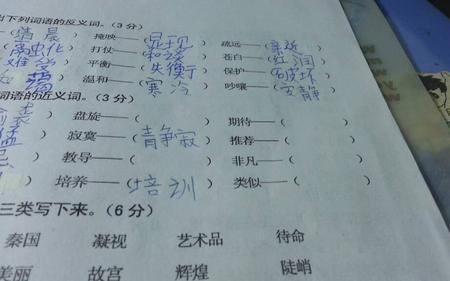 出下列词语的反义词。（3分）
晨） 掩映——（显现） 疏远——（亲近
融化） 打仗——（和谈） 苍白——（红润
难 ） 平衡——（失衡） 保护——（破坏
温和——（寒冷） 吵嚷——（安静
词语的近义词。（3分）
盘旋——（ ） 期待——（
寂寞——（青静寂） 推荐——（
教导——（ ） 非凡——（
培养——（培训） 类似——（
三类写下来。（6分）
秦国 凝视 艺术品 待命
美丽 故宫 辉煌 陡峭